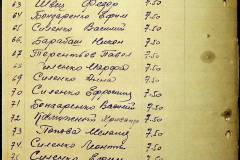 63 Швец Федор 7.50
64 Бондаренко Ефим 7.50
65 Сененко Василий 7.50
66 Барабаш Никон 7.50
67 Терентьев Павел 7.50
68 Силенко Марфа 7.50
69 Силенко Анна 7.50
70 Силенко Ефросиния 7.50
71 Бондаренко Василий 7.50
72 7.50
73 Попова Мелания 7.50
74 Силенко Леонтий 7.50
75 Силенко 7.50